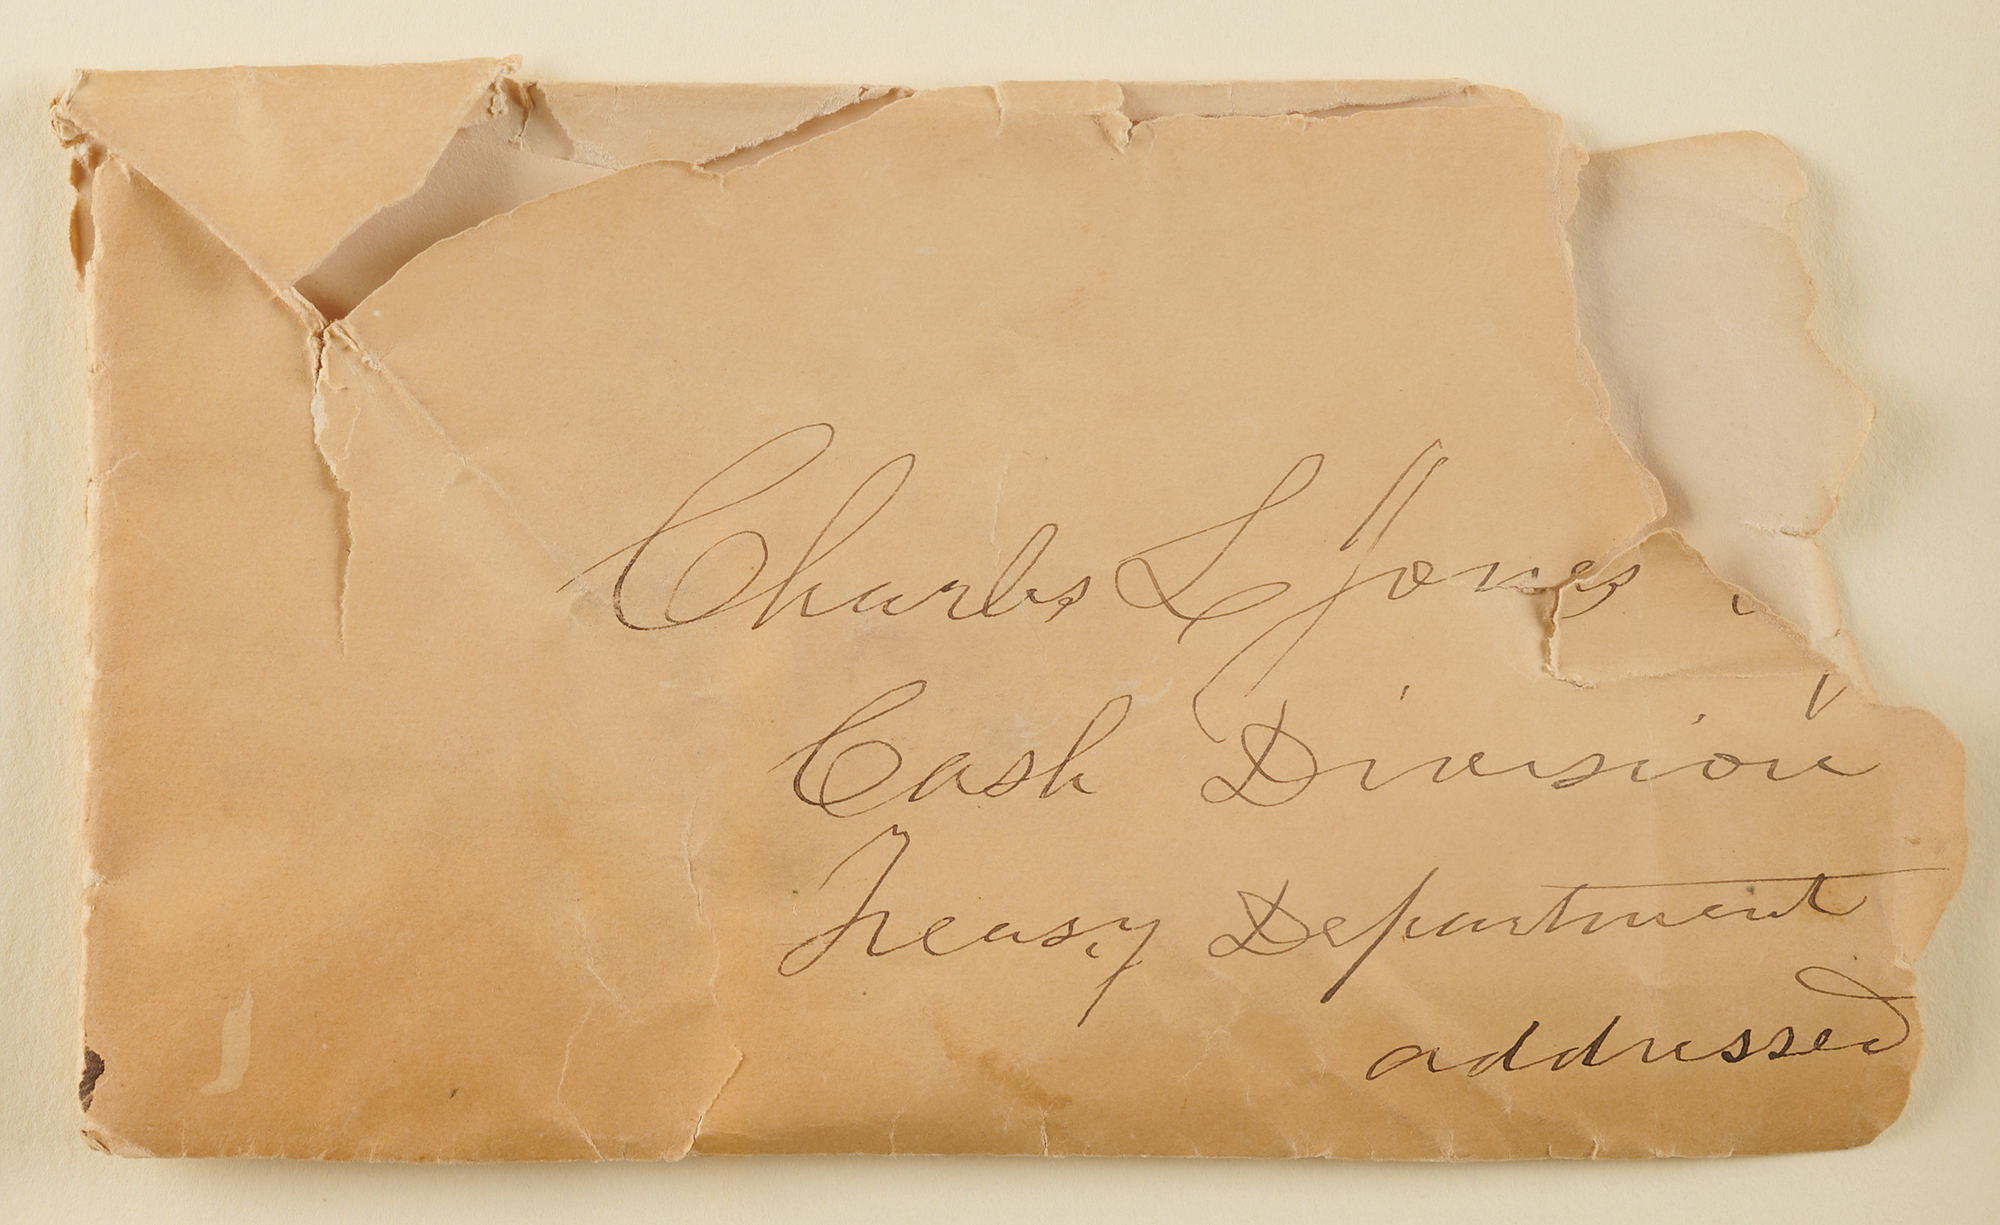 Charles L Jones
Cash Division
Treasy Department
addressed